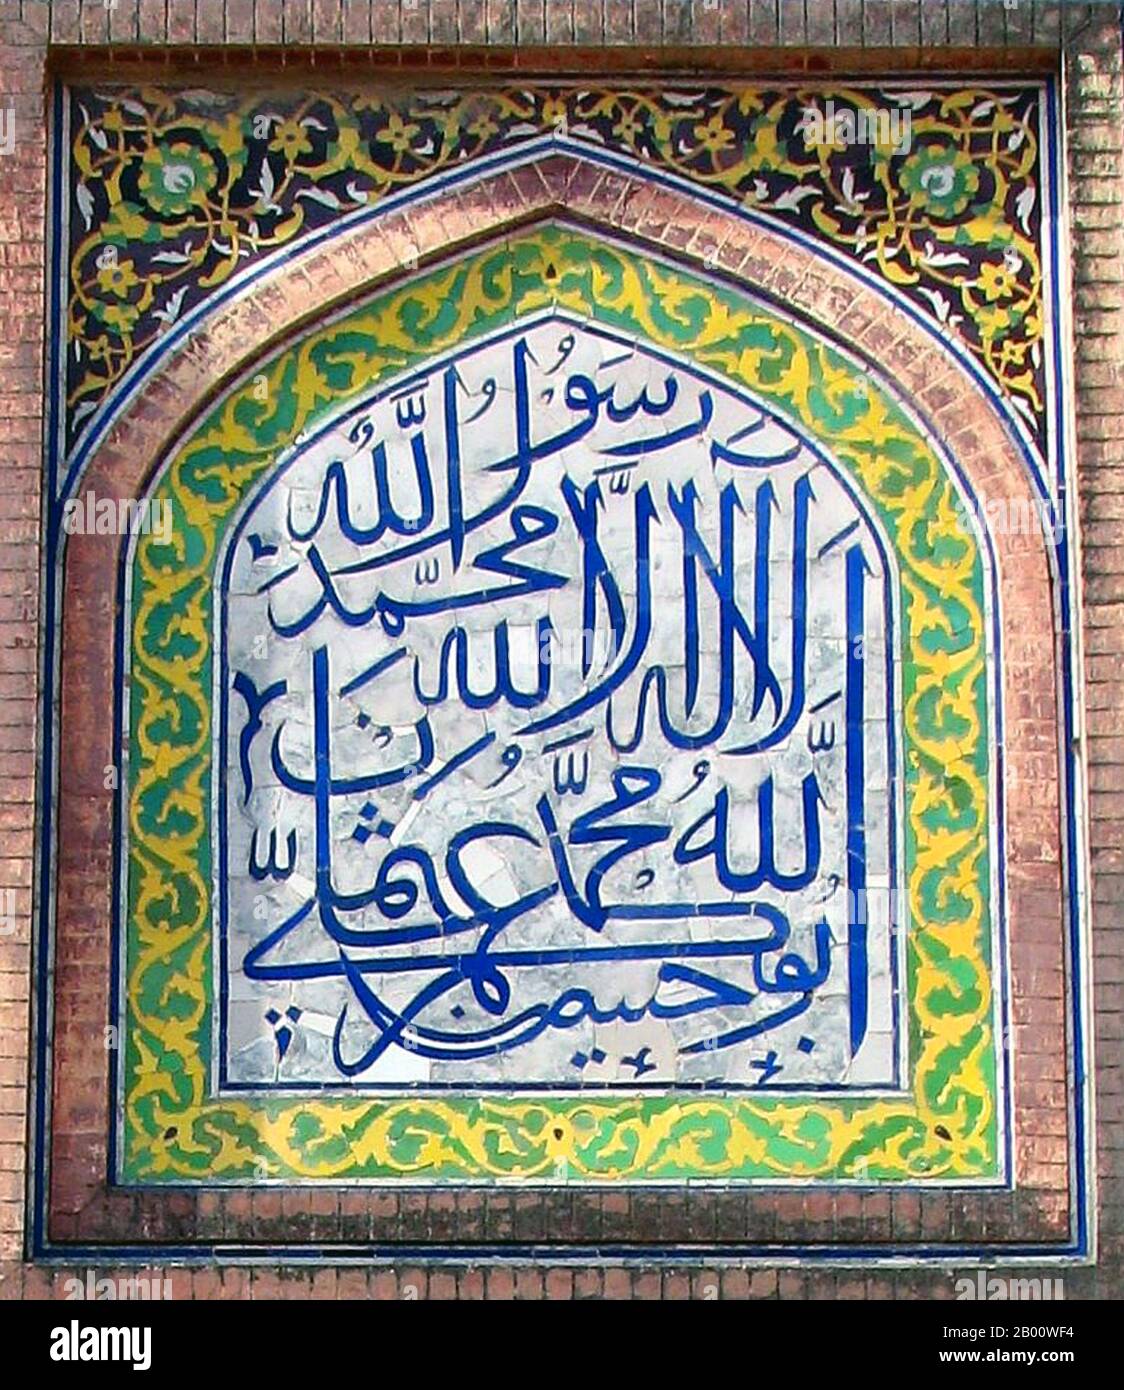 لا اله الا الله محمد رسول الله
الله محمد
ابوبكر عمر عثمان علي
alamy
Image ID: 2B00WF4
www.alamy.com